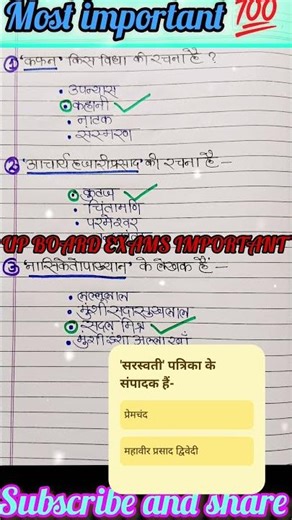 Most important 💯
① 'कफन' किस विधा की रचना है ?
• उपन्यास
• कहानी ✓
• नाटक
• संस्मरण
② 'आचार्य हजारीप्रसाद' की रचना है –
• कुटज ✓
• चिंतामणि
• परमेश्वर
UP BOARD EXAMS IMPORTANT
③ 'नासिकेतोपाख्यान' के लेखक हैं –
• लल्लूलाल
• मुंशी सदासुखलाल
• सदल मिश्र ✓
• मुंशी इंशा अल्ला खाँ
'सरस्वती' पत्रिका के
संपादक हैं-
प्रेमचंद
महावीर प्रसाद द्विवेदी
Subscribe and share